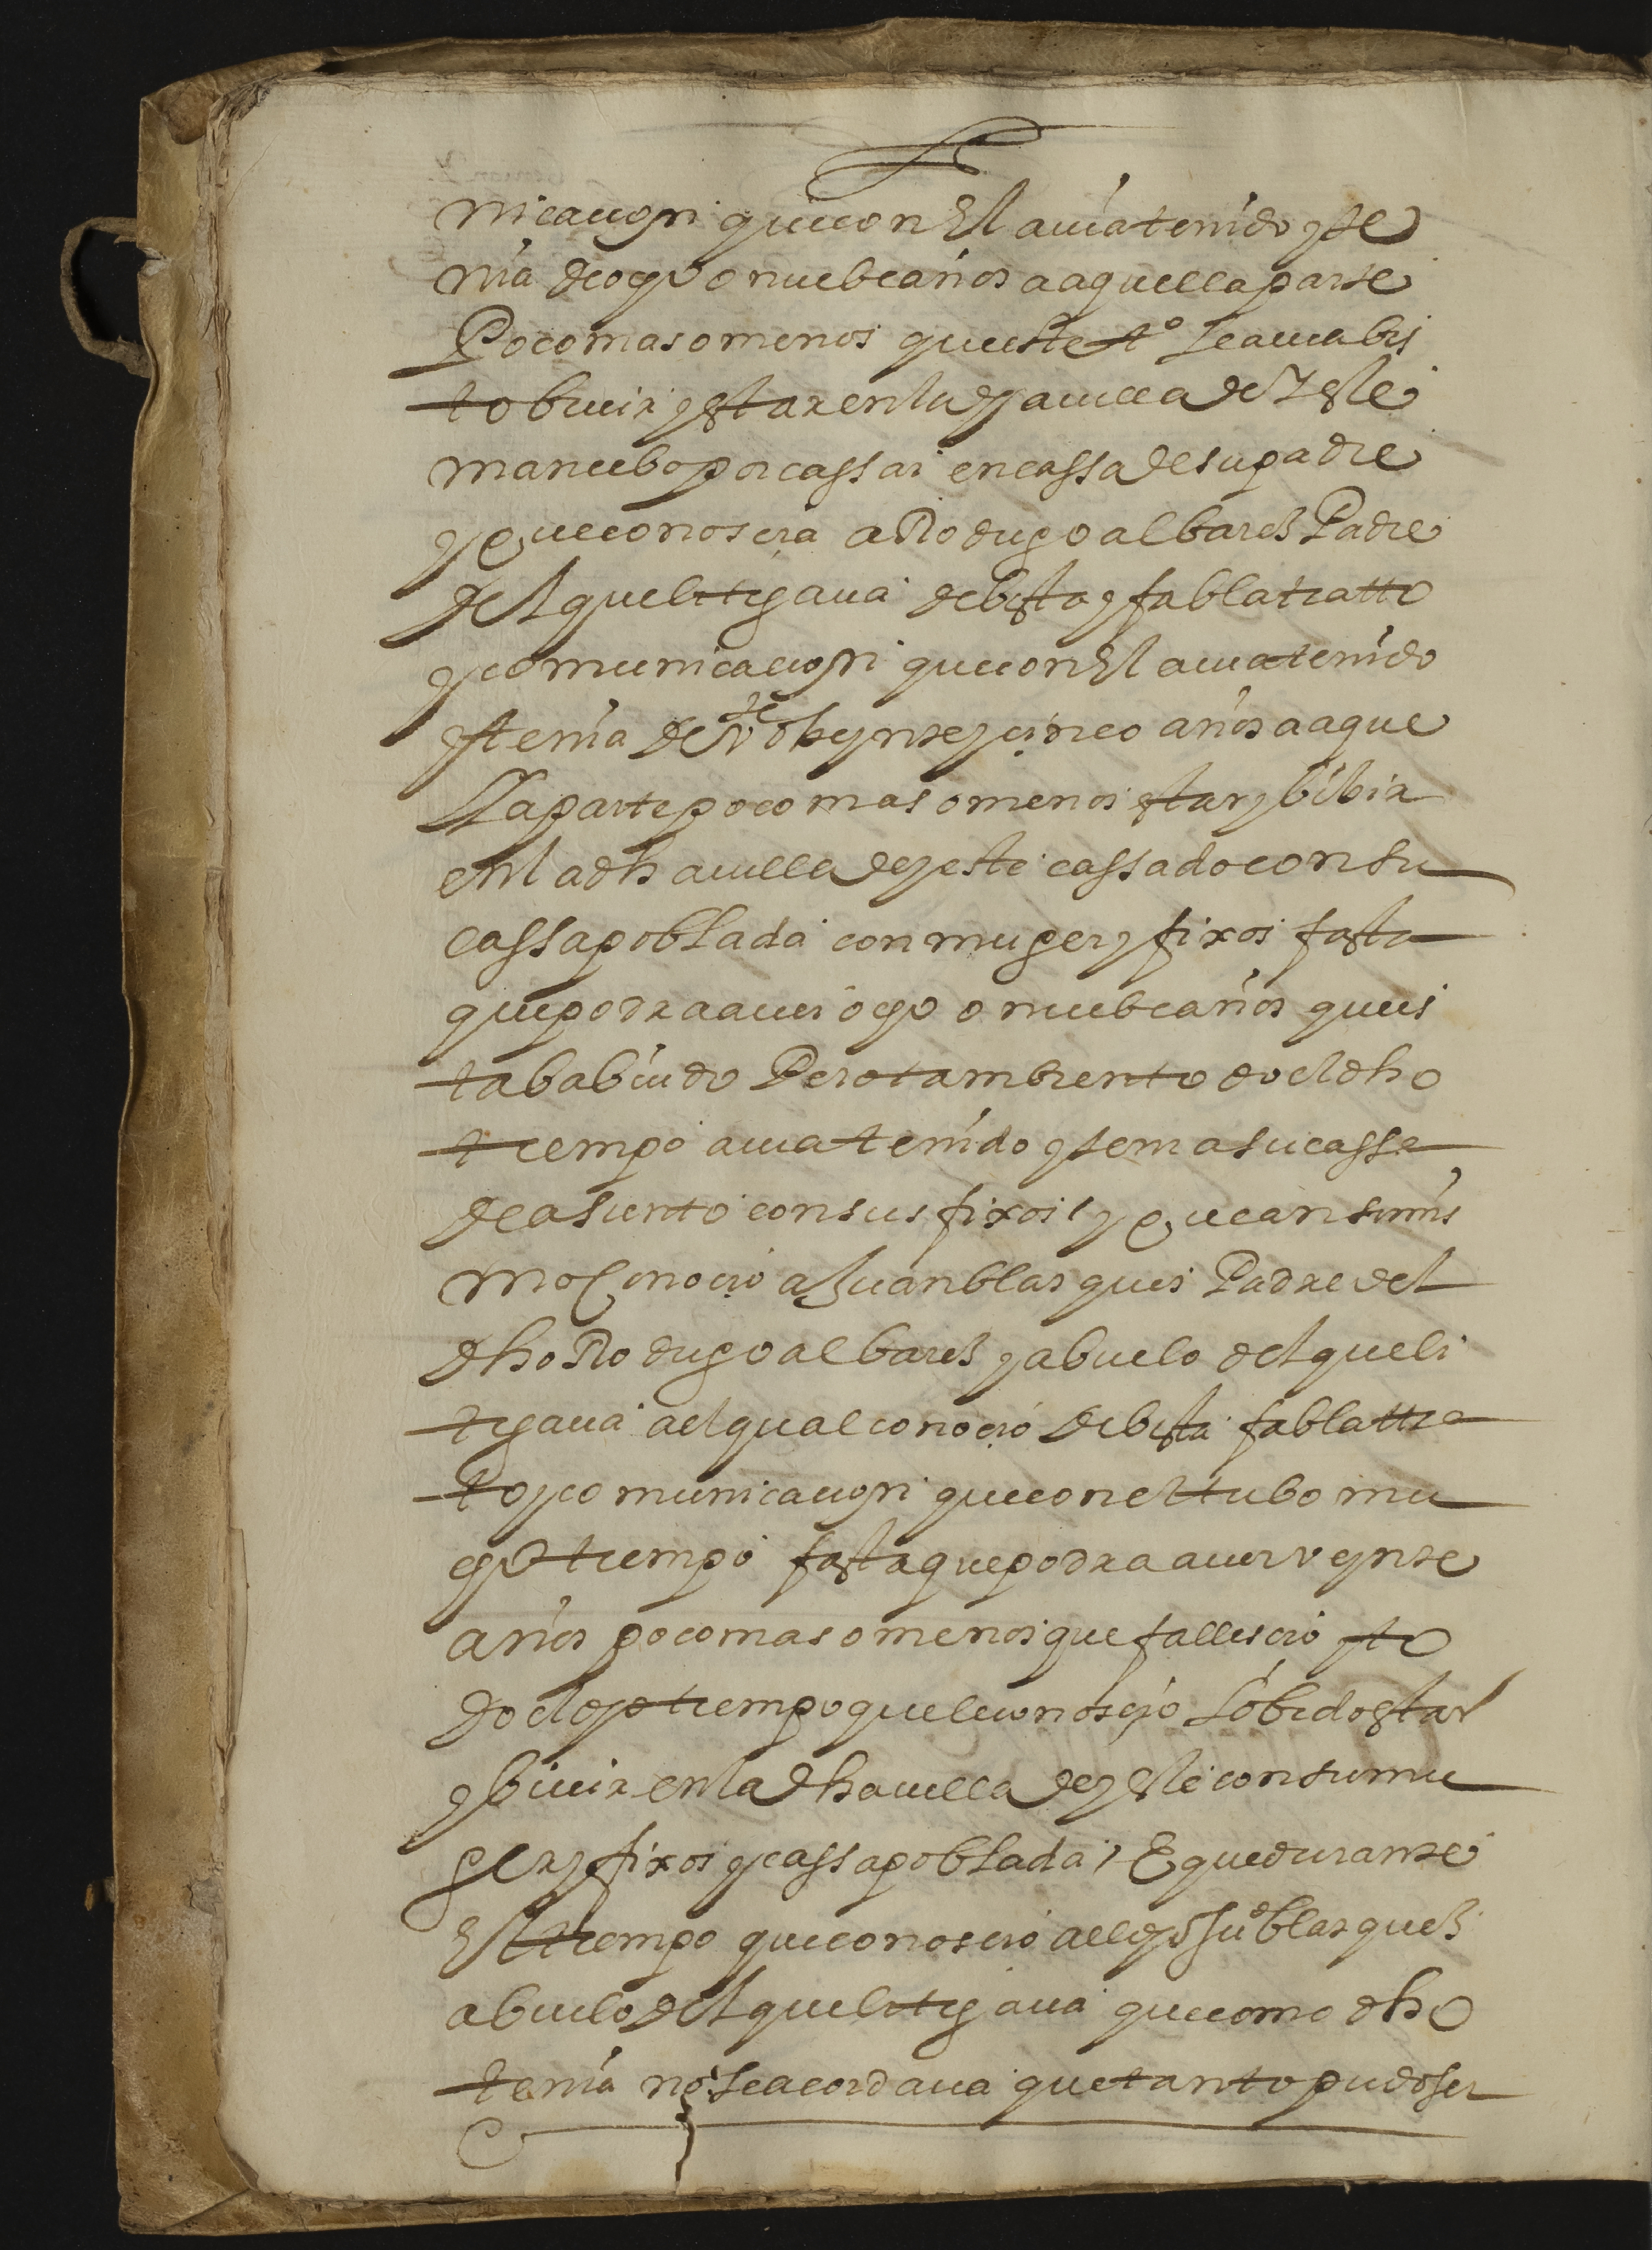 nicacion que con El auia tenido y te
nia de ocho o nuebe años a aquella parte
Poco mas o menos que este tº Le auia bis
to biuir y estar en la dha uilla de Yeste
mancebo por cassar en cassa de su padre
y que conoscia a Rodrigo albarez Padre
del que litigaua de bista y fabla tratto
y comunicacion que con El auia tenido
y tenia de beynte y cinco años a aque
lla parte poco mas o menos estar y bibir
en la dha uilla de yeste cassado con su
cassa poblada con muger y fixos fasta
que podra auer ocho o nuebe años que es
taba biudo Pero tambien todo el dho
tiempo auia tenido y tenia su cassa
de asiento con sus fixos / y que ansi mis
mo Conocio a Juan blasques Padre del
dho Rodrigo albarez y abuelo del que li
tigaua al qual conoció de bista fabla tra
to y comunicacion que con el tubo mu
cho tiempo fasta que podra auer veynte
años poco mas o menos que fallescio y to
do el dho tiempo que le conoscio Lo bido estar
y biuir en la dha uilla de yeste con su mu
ger y fixos y cassa poblada / E que durante
El tiempo que conoscio al dho Juº blasquez
abuelo del que litigaua que como dho
tenia no se acordaua que tanto pudo ser